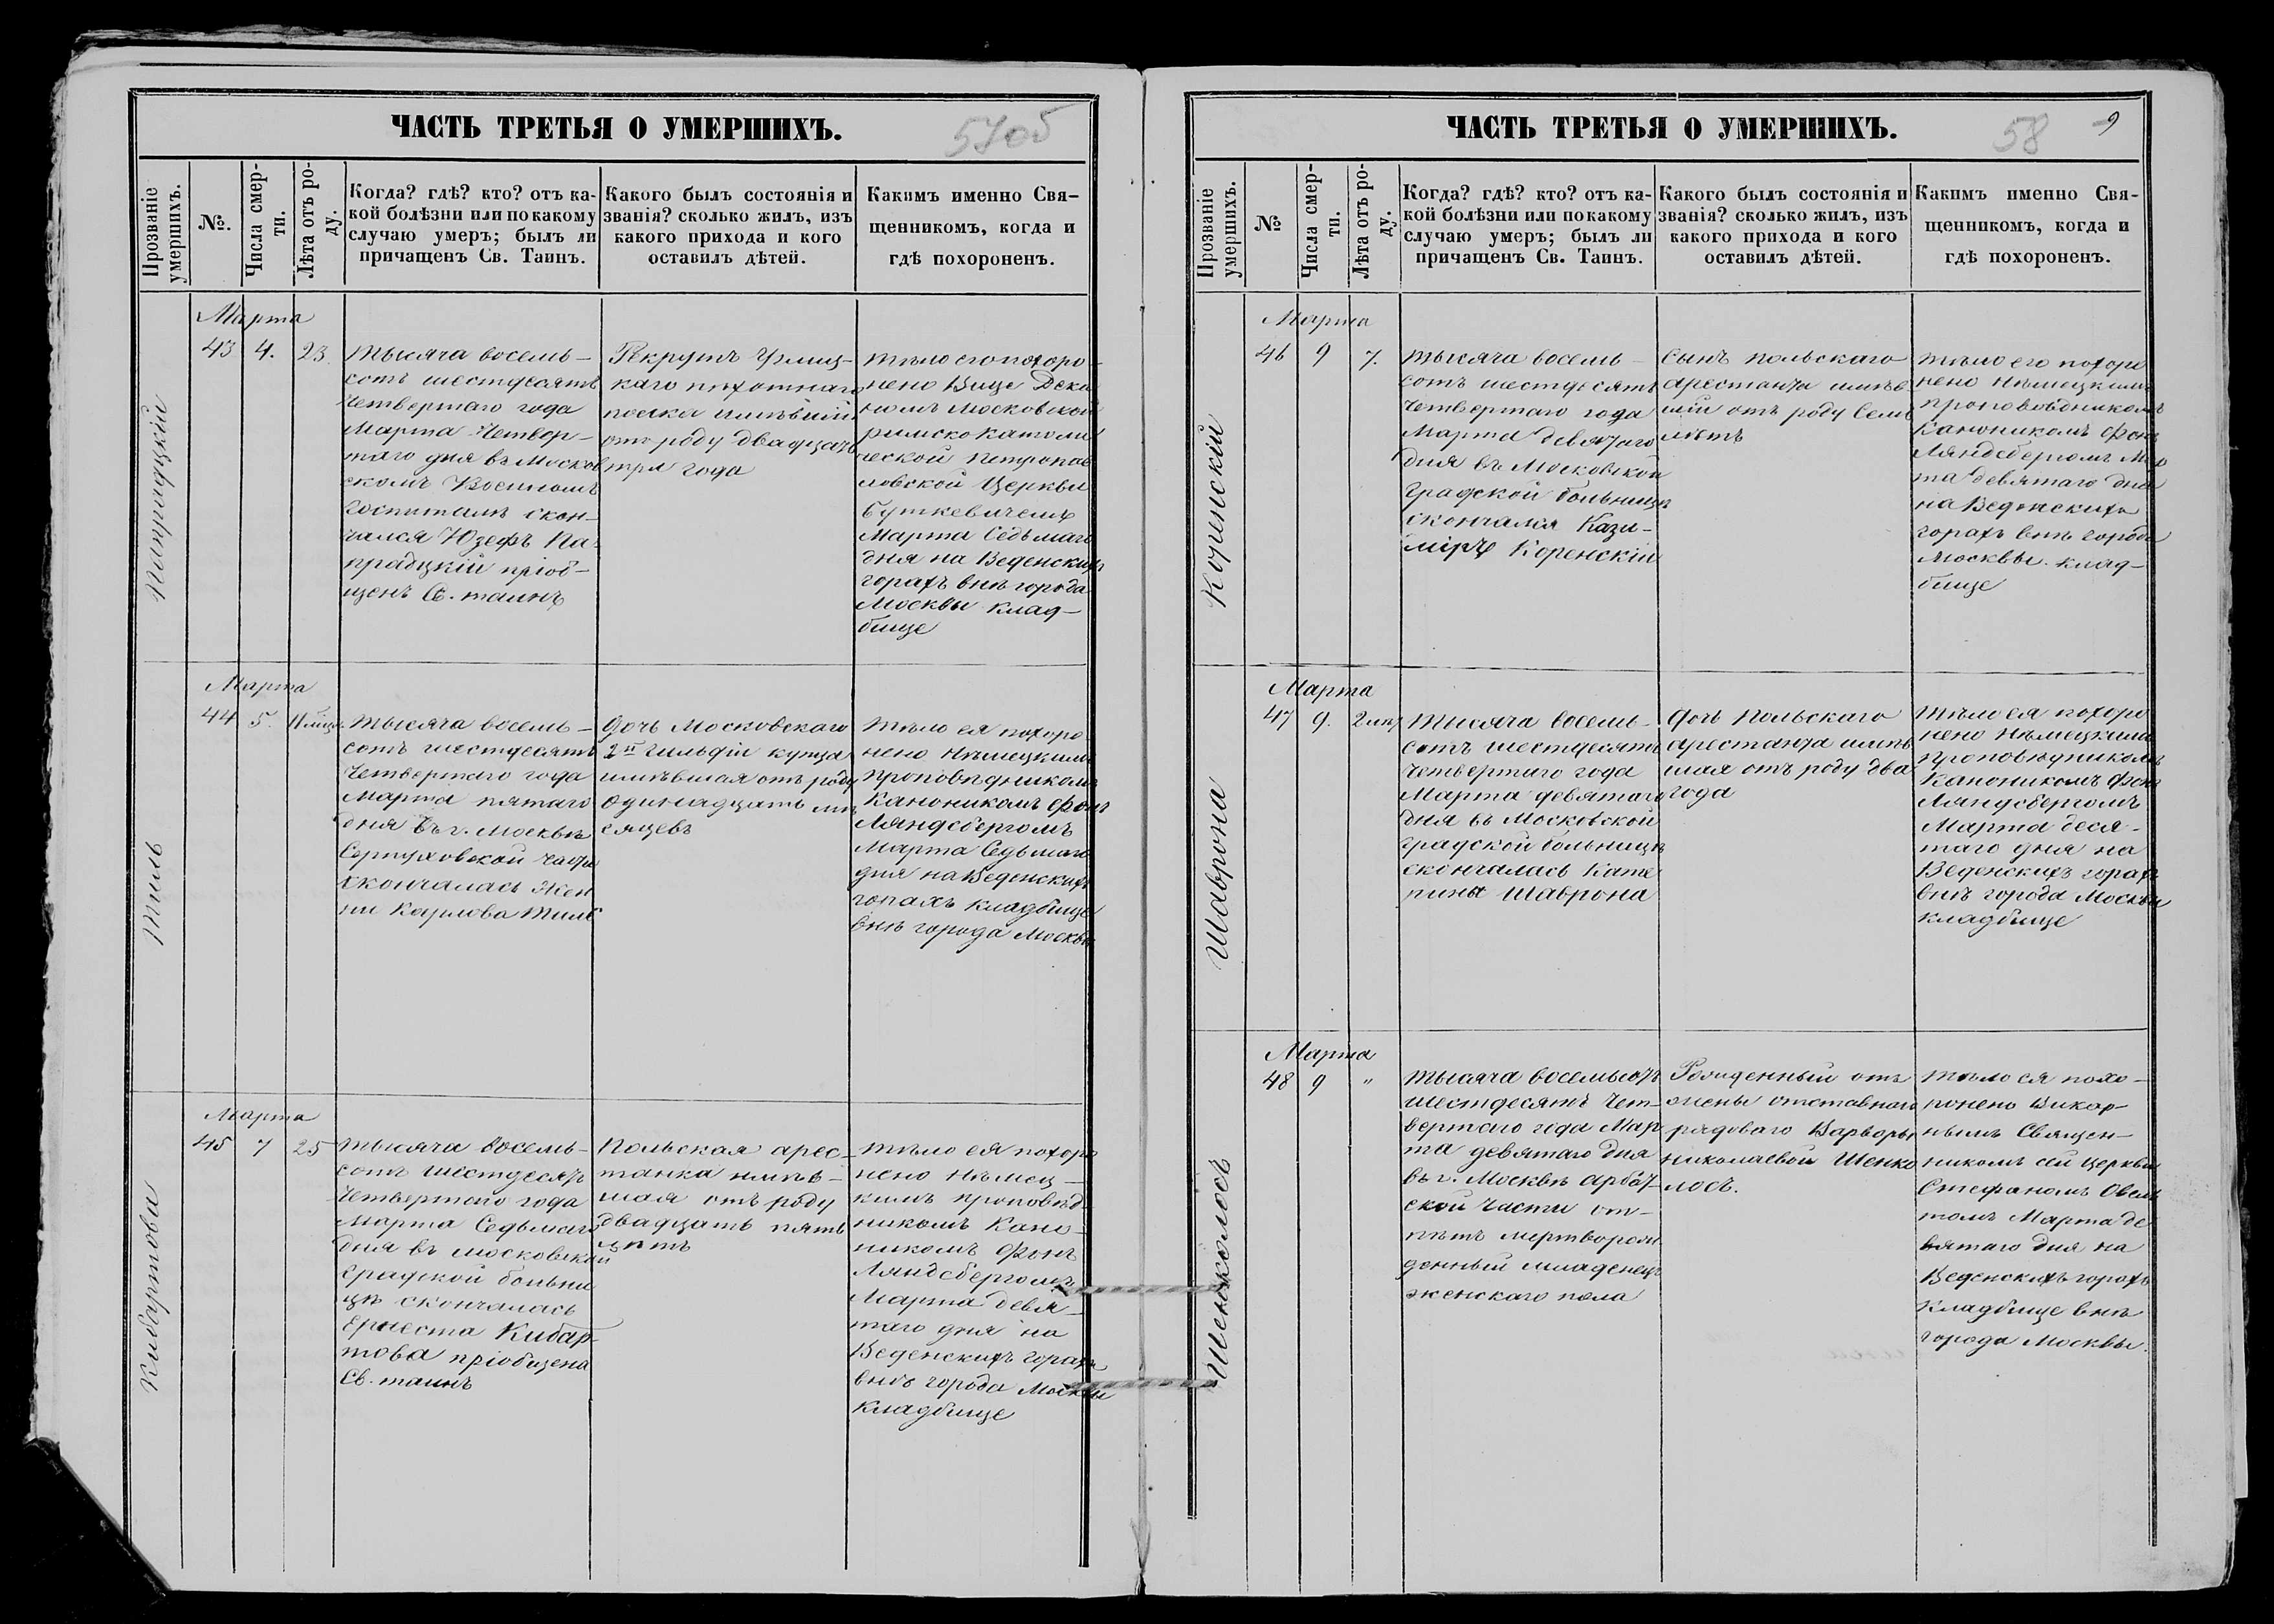 ЧАСТЬ ТРЕТЬЯ О УМЕРШИХЪ.
57об
Прозваніе умершихъ.
№.
Числа смерти.
Лѣта отъ роду.
Когда? гдѣ? кто? отъ ка-
кой болѣзни или по какому
случаю умеръ; былъ ли
причащенъ Св. Таинъ.
Какого былъ состоянія и
званія? сколько жилъ, изъ
какого прихода и кого
оставилъ дѣтей.
Какимъ именно Свя-
щенникомъ, когда и
гдѣ похороненъ.
Папрадцкій
Марта
43 4. 23.
тысяча восемь-
сотъ шестдесятъ
четвертаго года
Марта Четвер-
таго дня въ Москов
скомъ Военномъ
госпиталѣ скон-
чался Юзефъ Па-
прадцкій пріоб-
щенъ Св. таинъ
Рекрутъ
каго пѣхотнаго
полка имѣвшій
отъ роду двадцать
три года
тѣло его похоро
нено Вице Дека
номъ Московской
римско Католи
ческой Петропав
ловской Церкви
Буткевичемъ
Марта Седьмаго
дня на Веденскихъ
горахъ внѣ города
Москвы клад-
бище
Тиль
Марта
44 5. 11 мѣся.
тысяча восемь-
сотъ шестдесятъ
четвертаго года
Марта пятаго
дня въ г. Москвѣ
Серпуховской части
скончалась Жен
ни Карлова Тиль
Дочь Московскаго
2й Гильдіи купца
имѣвшая отъ роду
одинадцать мѣ
сяцевъ
тѣло ея похоро
нено Нѣмецкимъ
проповѣдникомъ
Каноникомъ Фонъ
Ляндсбергомъ
Марта Седьмаго
дня на Веденскихъ
горахъ кладбище
внѣ города Москвы
Кибартова
Марта
45 7 25
тысяча восемь-
сотъ шестдесятъ
четвертаго года
Марта Седьмаго
дня въ Московской
градской больни
цѣ скончалась
Ернеста Кибар-
това пріобщена
Св. таинъ
Польская арес-
танка имѣв-
шая отъ роду
двадцать пять
лѣтъ
тѣло ея похоро
нено Нѣмец-
кимъ проповѣд-
никомъ Кано-
никомъ Фонъ
Ляндсбергомъ
Марта девя-
таго дня на
Веденскихъ горахъ
внѣ города Москвы
кладбище
ЧАСТЬ ТРЕТЬЯ О УМЕРШИХЪ.
58
9
Прозваніе умершихъ.
№
Числа смерти.
Лѣта отъ роду.
Когда? гдѣ? кто? отъ ка-
кой болѣзни или по какому
случаю умеръ; былъ ли
причащенъ Св. Таинъ.
Какого былъ состоянія и
званія? сколько жилъ, изъ
какого прихода и кого
оставилъ дѣтей.
Какимъ именно Свя-
щенникомъ, когда и
гдѣ похороненъ.
Коренскій
Марта
46 9 7.
тысяча восемь-
сотъ шестдесятъ
четвертаго года
Марта девятаго
дня въ Московской
градской больницѣ
скончался Кази-
міръ Коренскій
Сынъ польскаго
арестанта имѣв
шій отъ роду Семь
лѣтъ
тѣло его похоро
нено Нѣмецкимъ
проповѣдникомъ
Каноникомъ Фонъ
Ляндсбергомъ Мар
та девятаго дня
на Веденскихъ
горахъ внѣ города
Москвы клад-
бище
Шаврона
Марта
47 9. 2
тысяча восемь-
сотъ шестдесятъ
четвертаго года
Марта девятаго
дня въ Московской
градской больницѣ
скончалась Кате
рина Шаврона
Дочь Польскаго
арестанта имѣв
шая отъ роду два
года
тѣло ея похоро
нено Нѣмецкимъ
проповѣдникомъ
Каноникомъ Фонъ
Ляндсбергомъ
Марта деся-
таго дня на
Веденскихъ горахъ
внѣ города Москвы
кладбище
Шенколосъ
Марта
48 9 "
тысяча восемьсотъ
шестдесятъ чет-
вертаго года Мар
та девятаго дня
въ г. Москвѣ Арбат
ской части от-
пѣтъ мертворож-
денный младенецъ
женскаго пола
Рожденный отъ
жены отставнаго
рядоваго Варвары
Николаевой Шенко
лосъ.
тѣло ея похо-
ронено Викар-
нымъ Священ-
никомъ сей Церкви
Стефаномъ
томъ Марта де
вятаго дня на
Веденскихъ горахъ
кладбище внѣ
города Москвы.